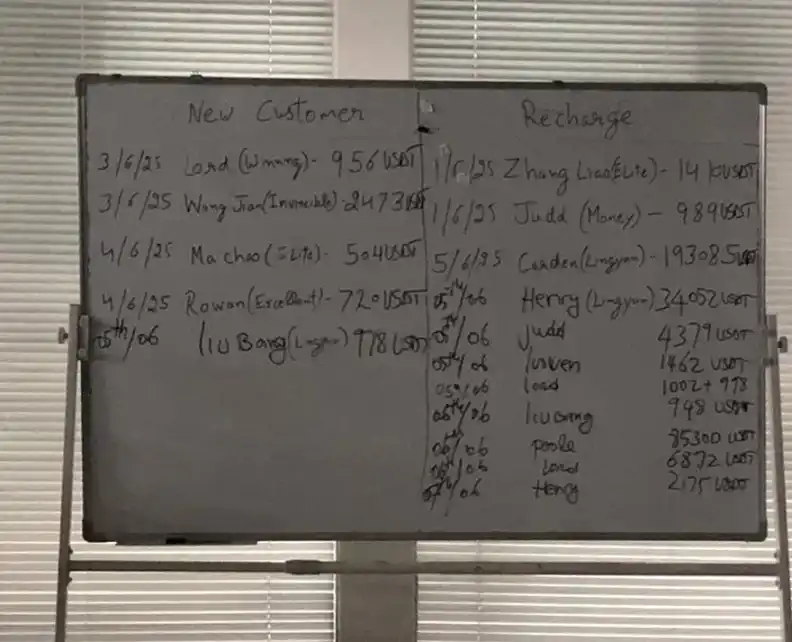 New Customer
3/6/25 Lord (Winning)- 956 USDT
3/6/25 Wang Jian(Invincible)-2473USDT
4/6/25 Ma chao(Elite)- 504USDT
4/6/25 Rowan(Excellent)-720USDT
05th/06 liu Bang(Lingyun) 978 USDT
Recharge
1/6/25 Zhang Liao(Elite)- USDT
1/6/25 Judd (Money) - 989USDT
5/6/25 (Lingyun)-193085USDT
05th/06 Henry(Lingyun)34052USDT
05th/06 Judd 4379USDT
05th/06 1462 USDT
05th/06 Lord 1002+ 978
06th/06 liu Bang 948 USDT
06th/06 poole 85300 USDT
06th/06 Lord 6872 USDT
07th/06 Henry 2175 USDT